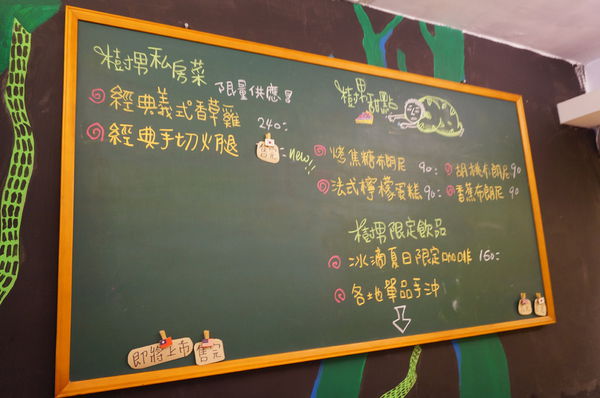 樹男私房菜 限量供應!!
經典義式香草雞 240:
經典手切火腿 售完 new!!
樹男甜點
烤焦糖布朗尼 90: 胡桃布朗尼 90
法式檸檬蛋糕 90: 香蕉布朗尼 90
樹男限定飲品
冰滴夏日限定咖啡 160:
各地單品手沖
即將上市 售完